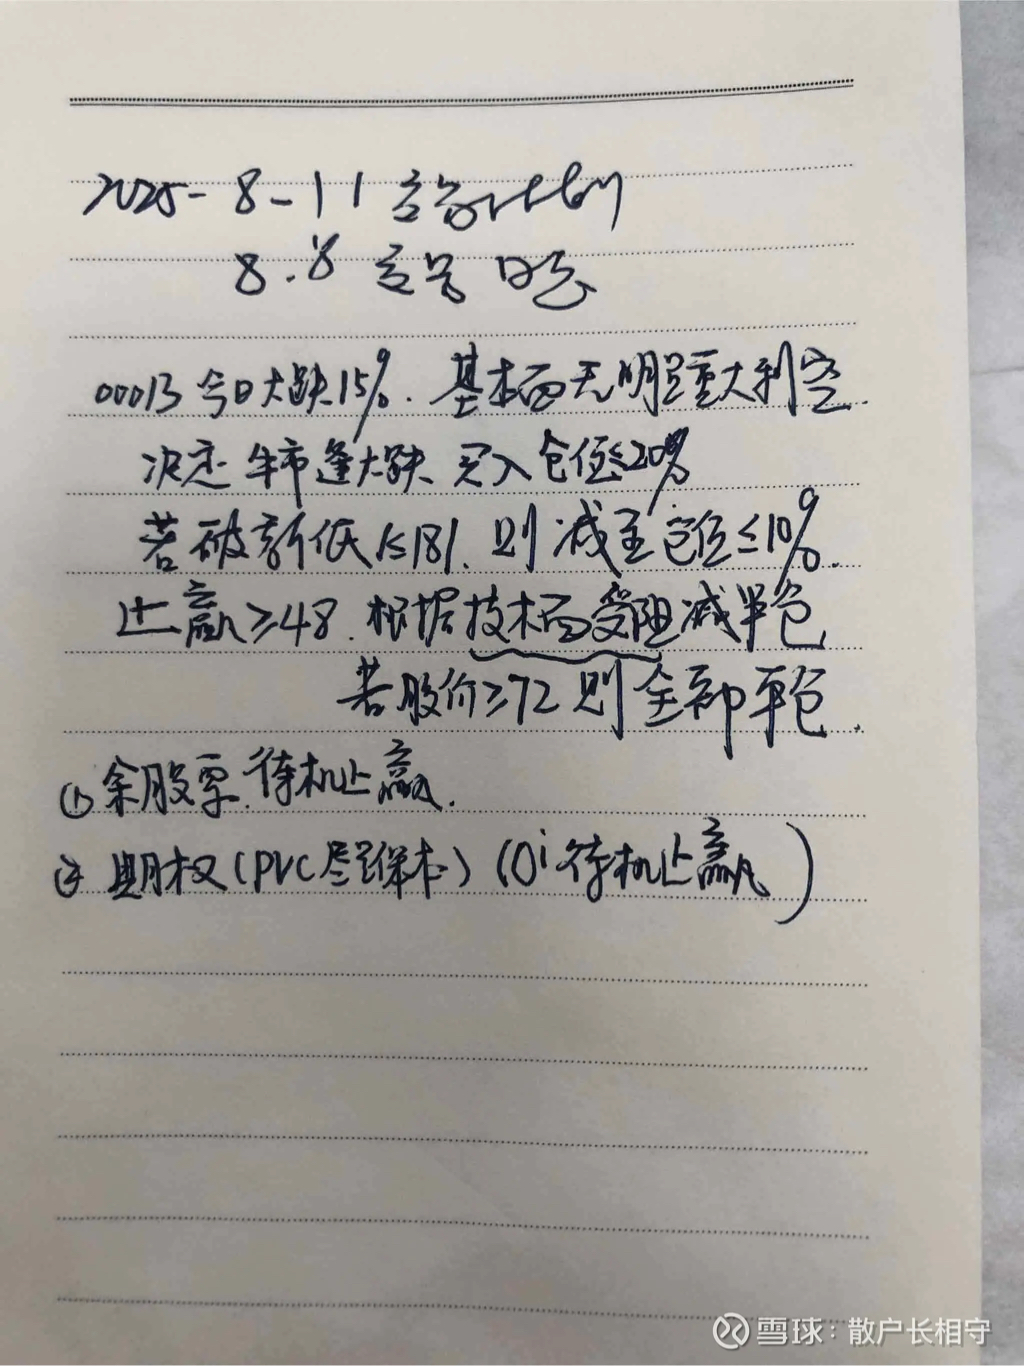 2025-8-11 交易计划
8.8 交易日志
00013 今日大跌15%. 基本面无明显重大利空.
决定 牛市逢大跌 买入仓位≤20%
若破新低≤181.则减至仓位≤10%.
止赢≥48.根据技术面受阻减半仓
若股价≥72则全部平仓.
① 余股票.待机止赢.
② 期权(PVC尽量保本)(Oi待机止赢)
雪球：散户长相守